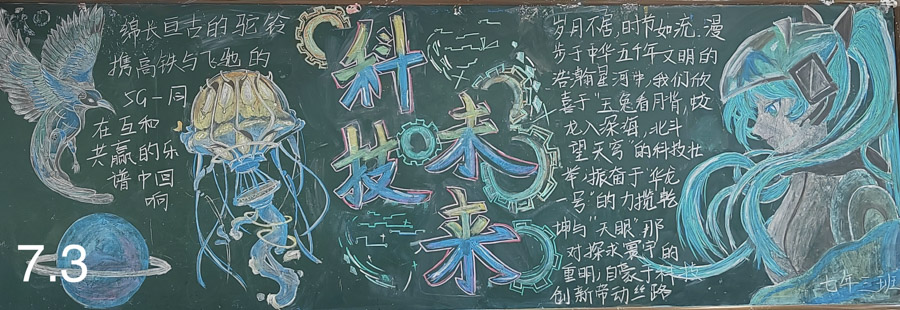 绵长亘古的驼铃
携高铁与飞驰的
5G一同
在互和
共赢的乐
谱中回
响
科技未来
岁月不居，时节如流，漫
步于中华五千年文明的
浩瀚星河中，我们欣
喜于“玉兔看月背，蛟
龙入深海，北斗
望天穹”的科技壮
举，振奋于“华龙
一号”的力揽乾
坤与“天眼”那
对探求寰宇的
重明，自豪于科技
创新带动丝路
七年三班
7.3